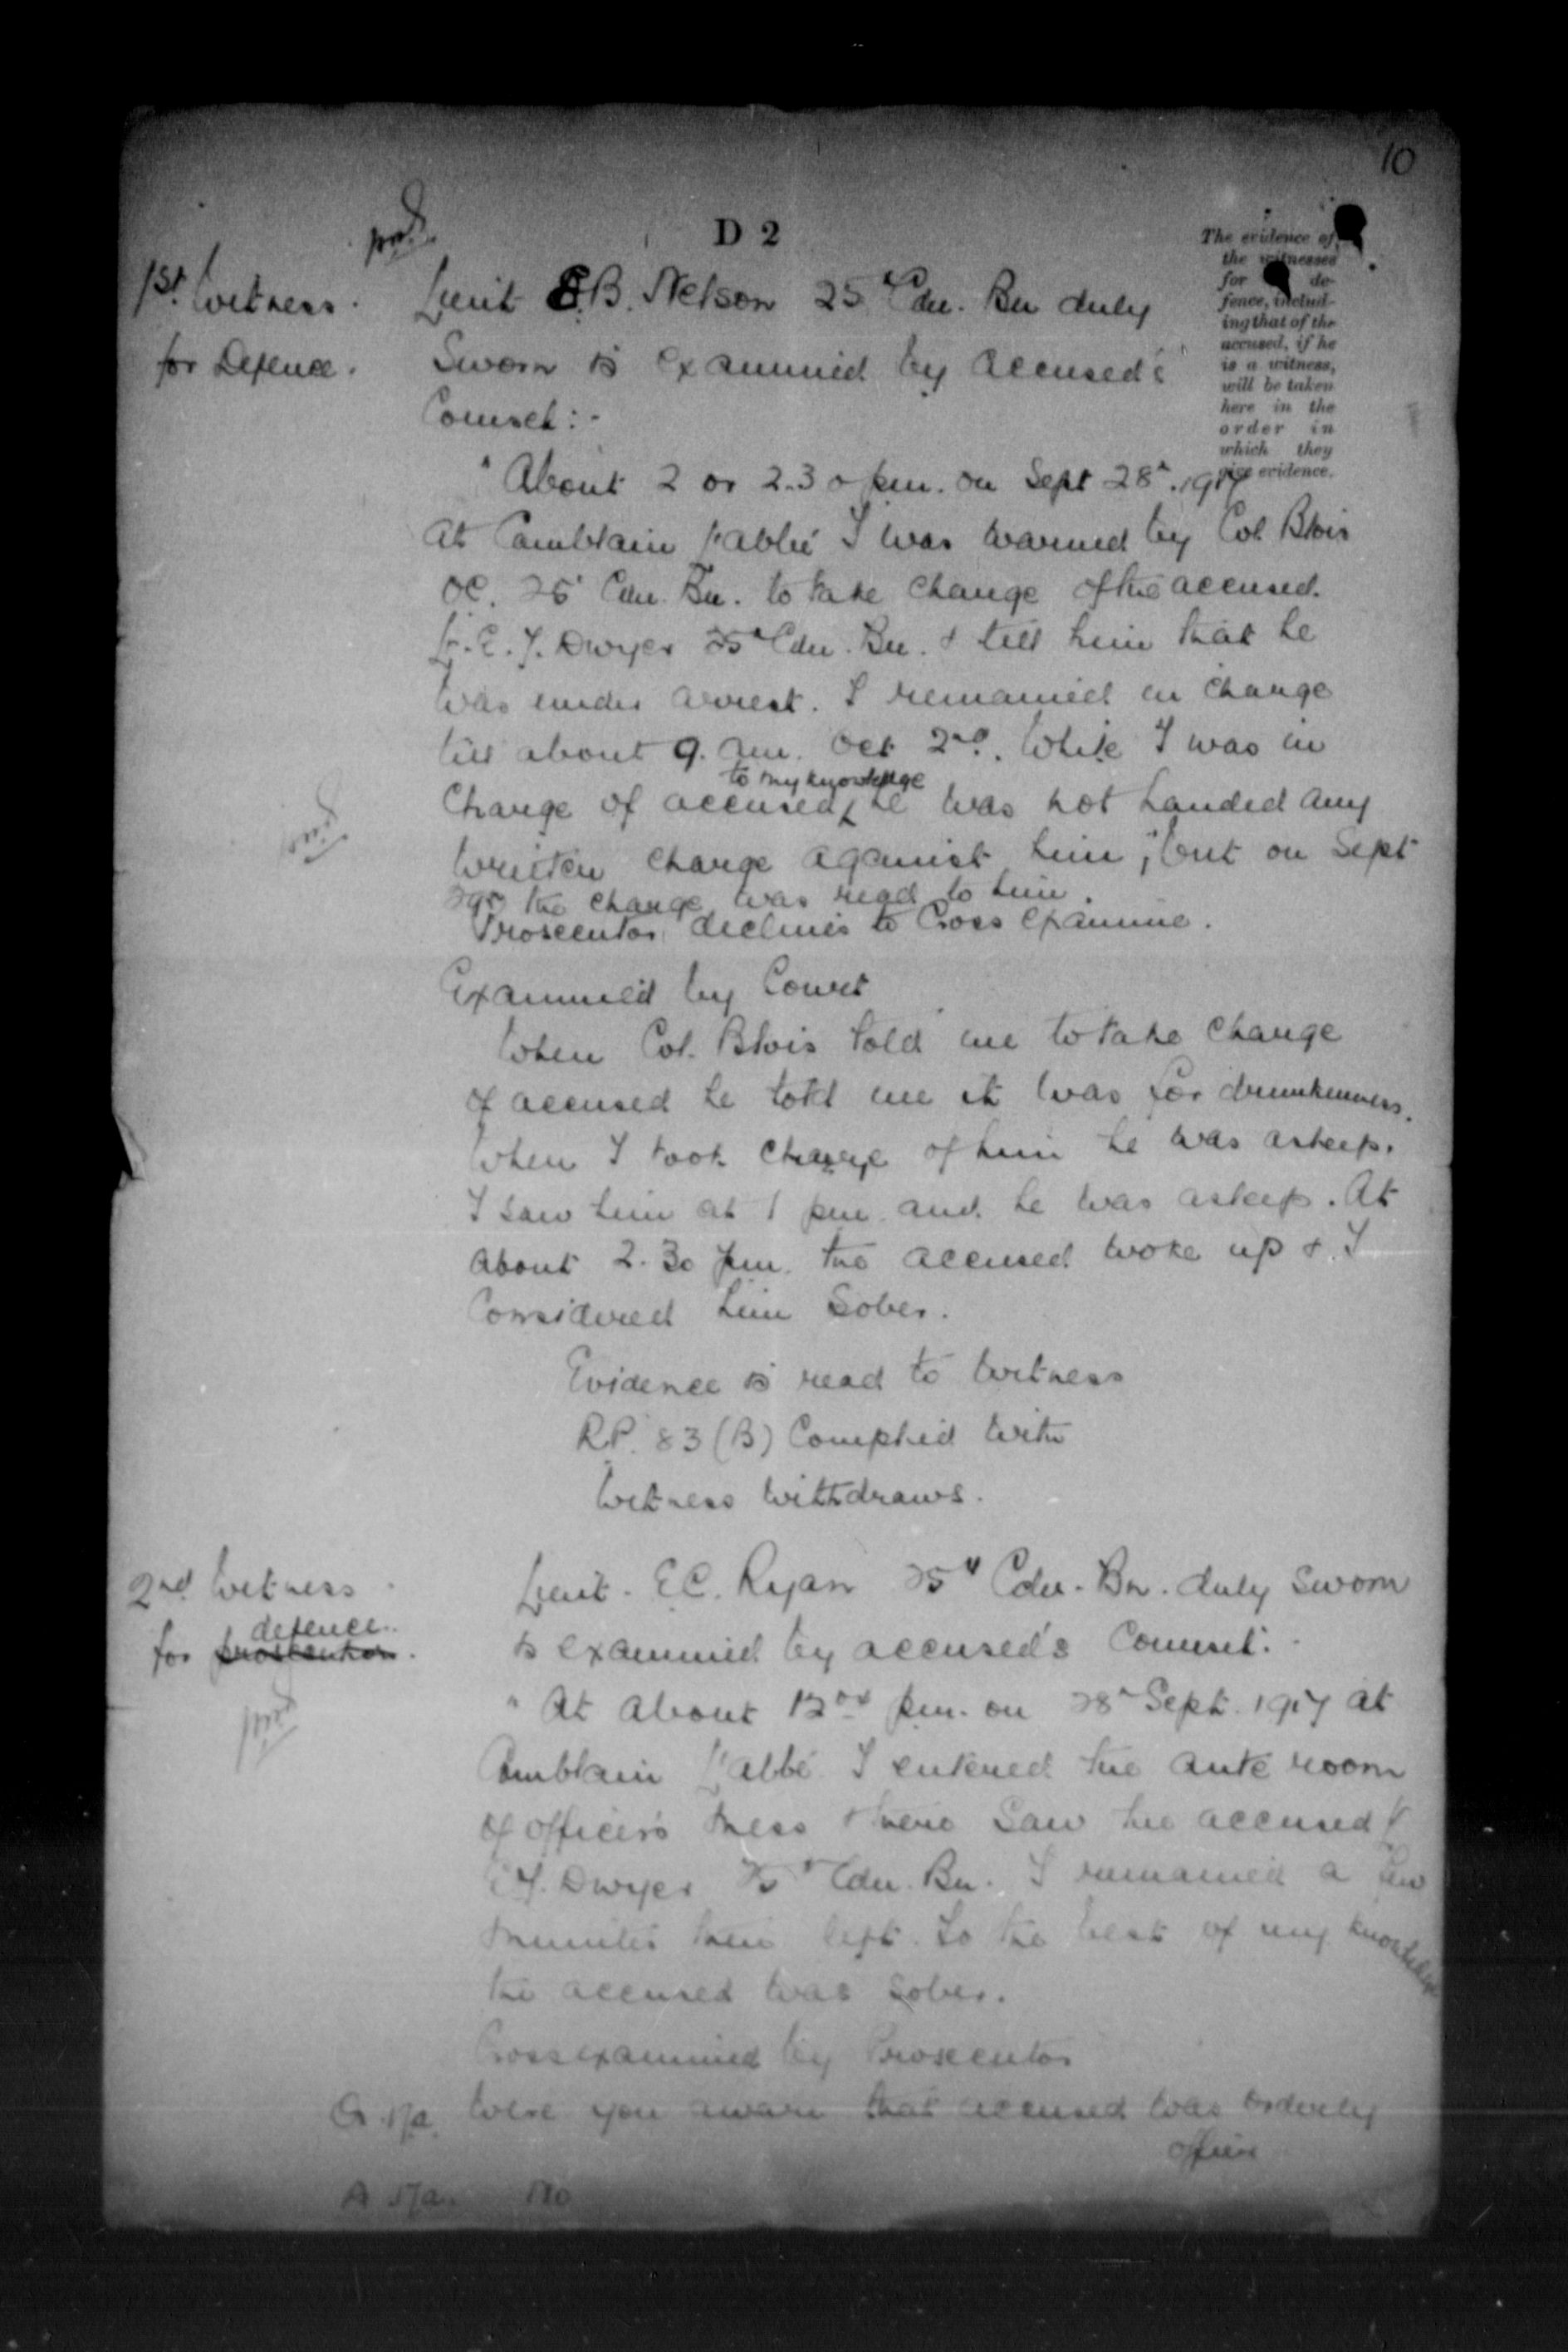 10
D 2
The evidence of
the witnesses
for de-
fence, includ-
ing that of the
accused, if he
is a witness,
will be taken
here in the
order in
which they
give evidence.
1st Witness.
for Defence.
Lieut E.B. Nelson 25th Cdn. Bn duly
Sworn is examined by accused's
Counsel:-
"About 2 or 2.30 pm. on Sept 28th. 1917
at Camblain l'abbé I was warned by Col. Blois
OC. 25th Cdn. Bn. to take charge of the accused.
Lt. E.J. Dwyer 25th Cdn. Bn. & tell him that he
was under arrest. I remained in charge
till about 9. am. Oct 2nd. While I was in
to my knowledge
Charge of accused, he was not handed any
written charge against him," but on Sept
29th the charge was read to him.
Prosecutor declines to Cross examine.
Examined by Court
When Col. Blois told me to take charge
of accused he told me it was for drunkenness.
When I took charge of him he was asleep.
I saw him at 1 pm. and he was asleep. At
about 2.30 pm. the accused woke up & I
Considered him Sober.
Evidence is read to witness
R.P. 83 (B) Complied with
Witness withdraws.
2nd Witness
defence.
for prosecution.
Lieut. E.C. Ryan 25th Cdn. Bn. duly sworn
is examined by accused's Counsel:-
"At about 12 pm. on 28th Sept. 1917 at
Camblain l'abbé I entered the ante room
of officers mess & there saw the accused Lt
E.J. Dwyer 25th Cdn. Bn. I remained a few
minutes then left. To the best of my knowledge
the accused was sober.
Cross examined by Prosecutor
Q 17a. Were you aware that accused was orderly
officer
A 17a. No